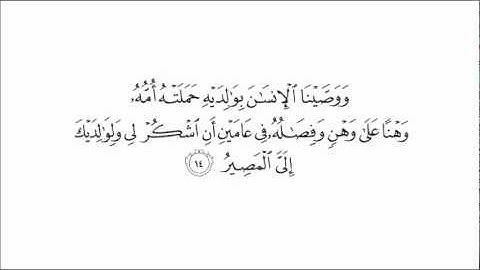 وَوَصَّيْنَا ٱلْإِنسَـٰنَ بِوَٰلِدَيْهِ حَمَلَتْهُ أُمُّهُۥ
وَهْنًا عَلَىٰ وَهْنٍ وَفِصَـٰلُهُۥ فِى عَامَيْنِ أَنِ ٱشْكُرْ لِى وَلِوَٰلِدَيْكَ
إِلَىَّ ٱلْمَصِيرُ ١٤